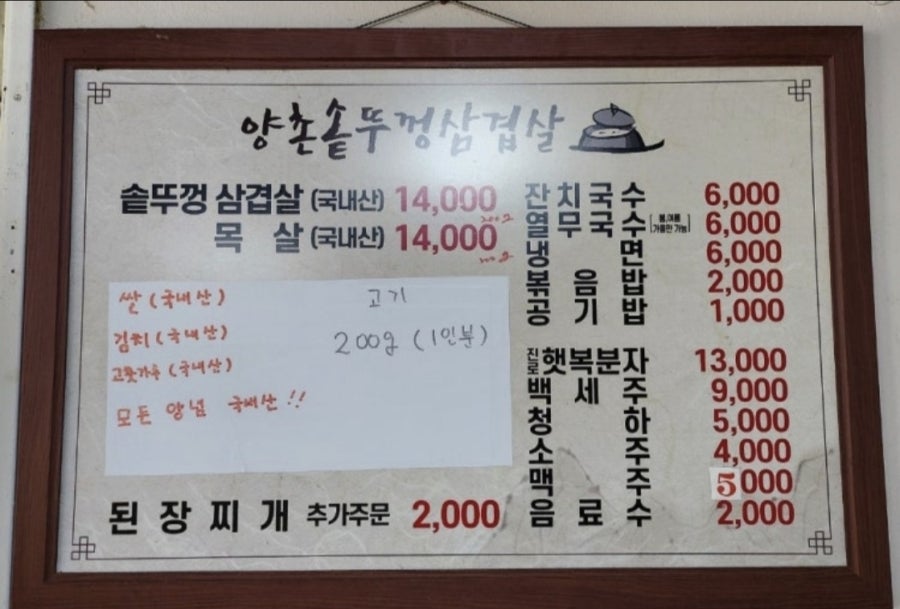 양촌솥뚜껑삼겹살
솥뚜껑 삼겹살 (국내산) 14,000
200g
목 살 (국내산) 14,000
200g
쌀 (국내산)
김치 (국내산)
고춧가루 (국내산)
모든 양념 국내산!!
고기
200g (1인분)
된장찌개 추가주문 2,000
잔치국수 6,000
열무국수 [봄,여름 가을만 가능] 6,000
냉면 6,000
볶음밥 2,000
공기밥 1,000
진로 햇복분자 13,000
백세주 9,000
청하 5,000
소주 4,000
맥주 5000
음료수 2,000